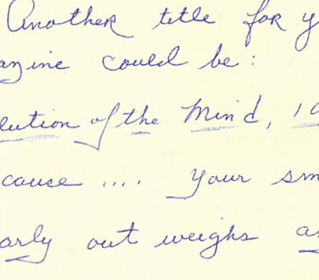 Another title for y
azine could be:
lution of the Mind, 10
cause .... your sm
early out weighs a